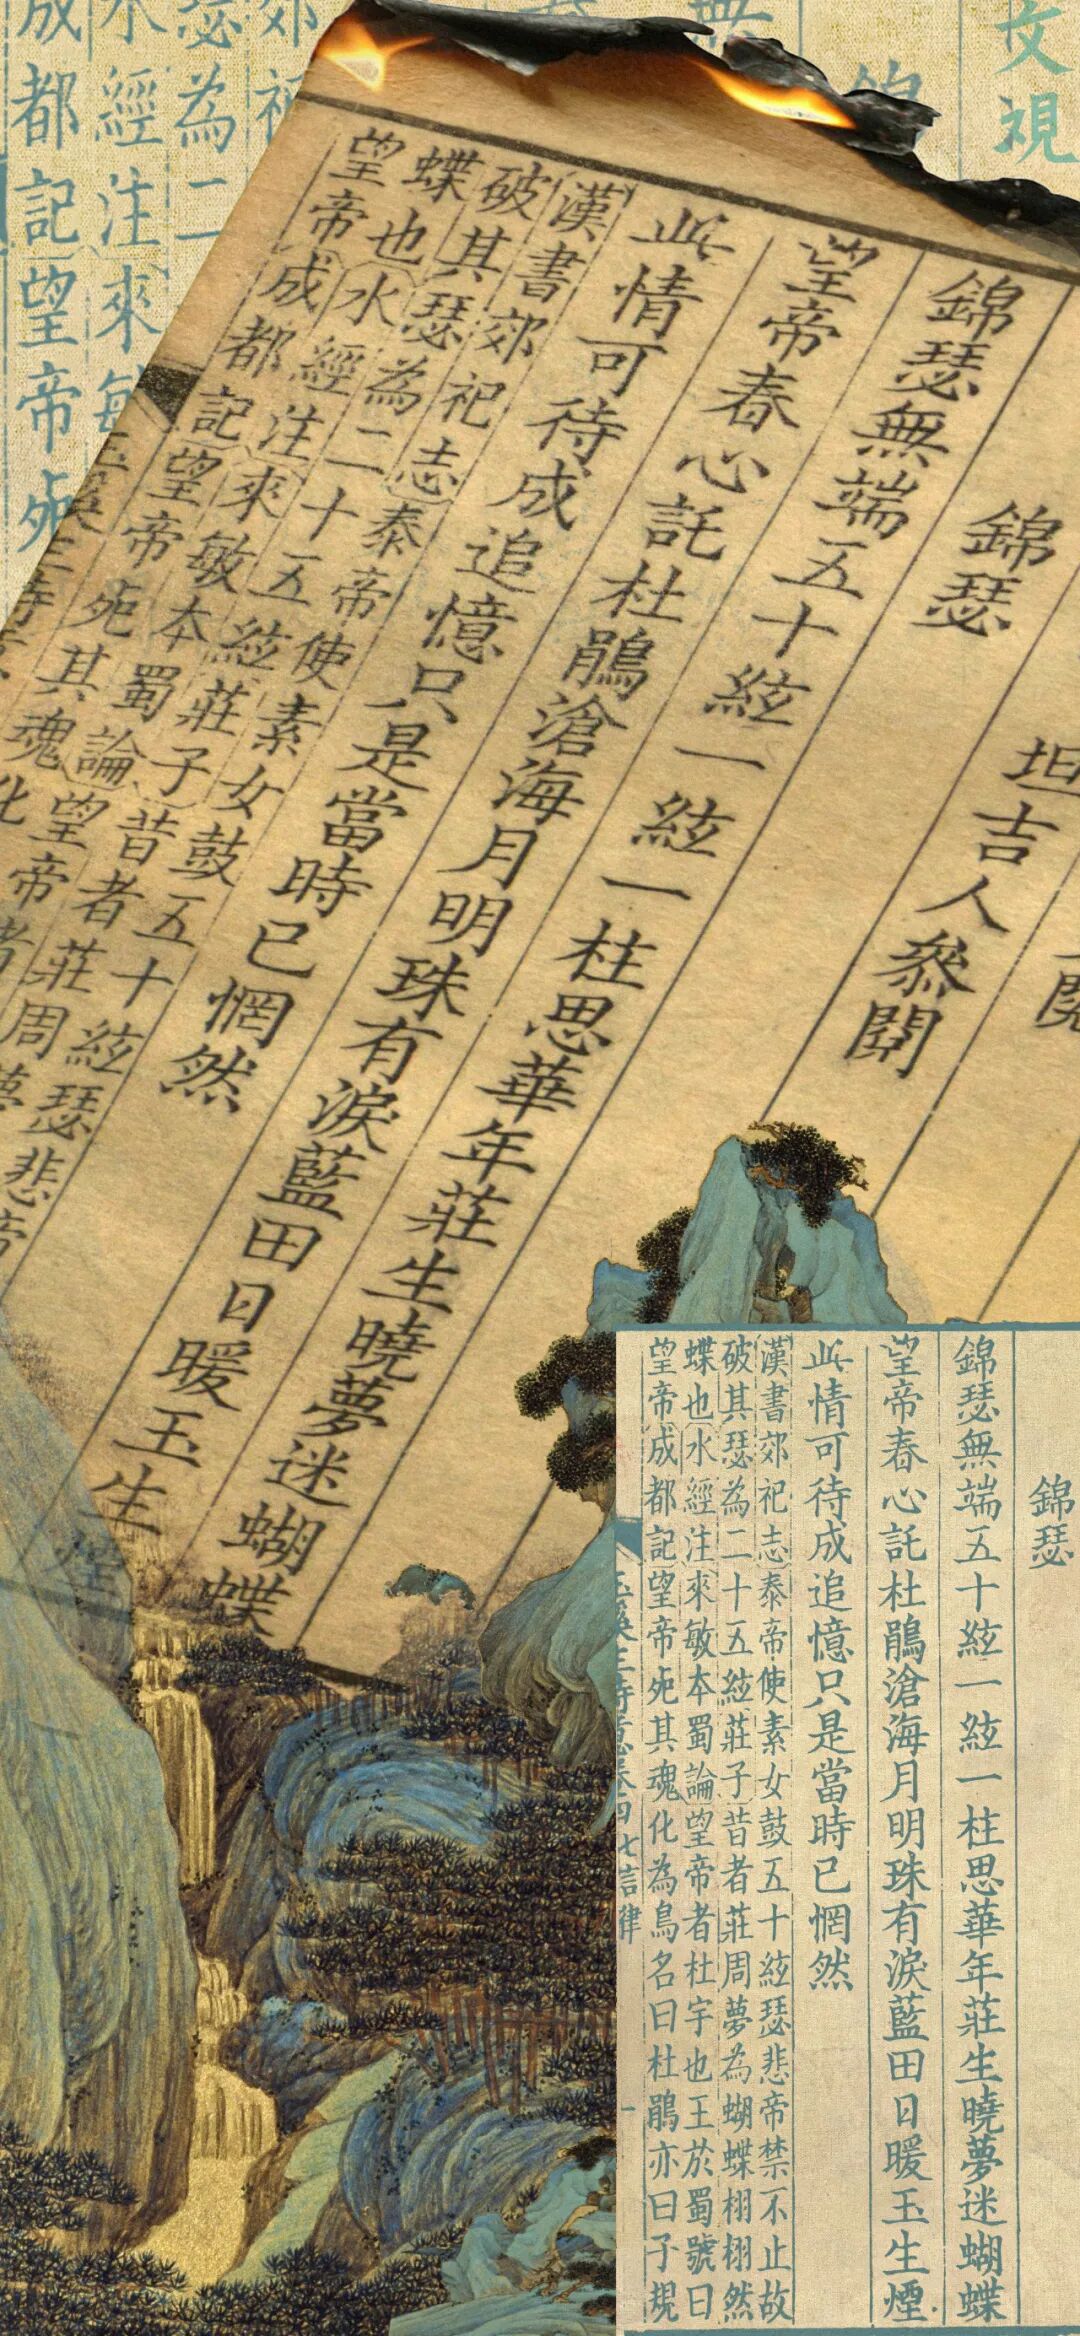 文視
錦瑟
坦吉人叅閱
錦瑟無端五十絃一絃一柱思華年莊生曉夢迷蝴蝶
望帝春心託杜鵑滄海月明珠有淚藍田日暖玉生煙
此情可待成追憶只是當時已惘然
漢書郊祀志泰帝使素女鼓五十絃瑟悲帝
破其瑟為二十五絃莊子昔者莊周夢
蝶也水經注來敏本蜀論望帝者
望帝成都記望帝死其魂化
錦
無
郊祀
瑟為二
水經注來敏
成都記望帝死
錦瑟
錦瑟無端五十絃一絃一柱思華年莊生曉夢迷蝴蝶
望帝春心託杜鵑滄海月明珠有淚藍田日暖玉生煙
此情可待成追憶只是當時已惘然
漢書郊祀志泰帝使素女鼓五十絃瑟悲帝禁不止故
破其瑟為二十五絃莊子昔者莊周夢為蝴蝶栩栩然
蝶也水經注來敏本蜀論望帝者杜宇也王於蜀號曰
望帝成都記望帝死其魂化為鳥名曰杜鵑亦曰子規